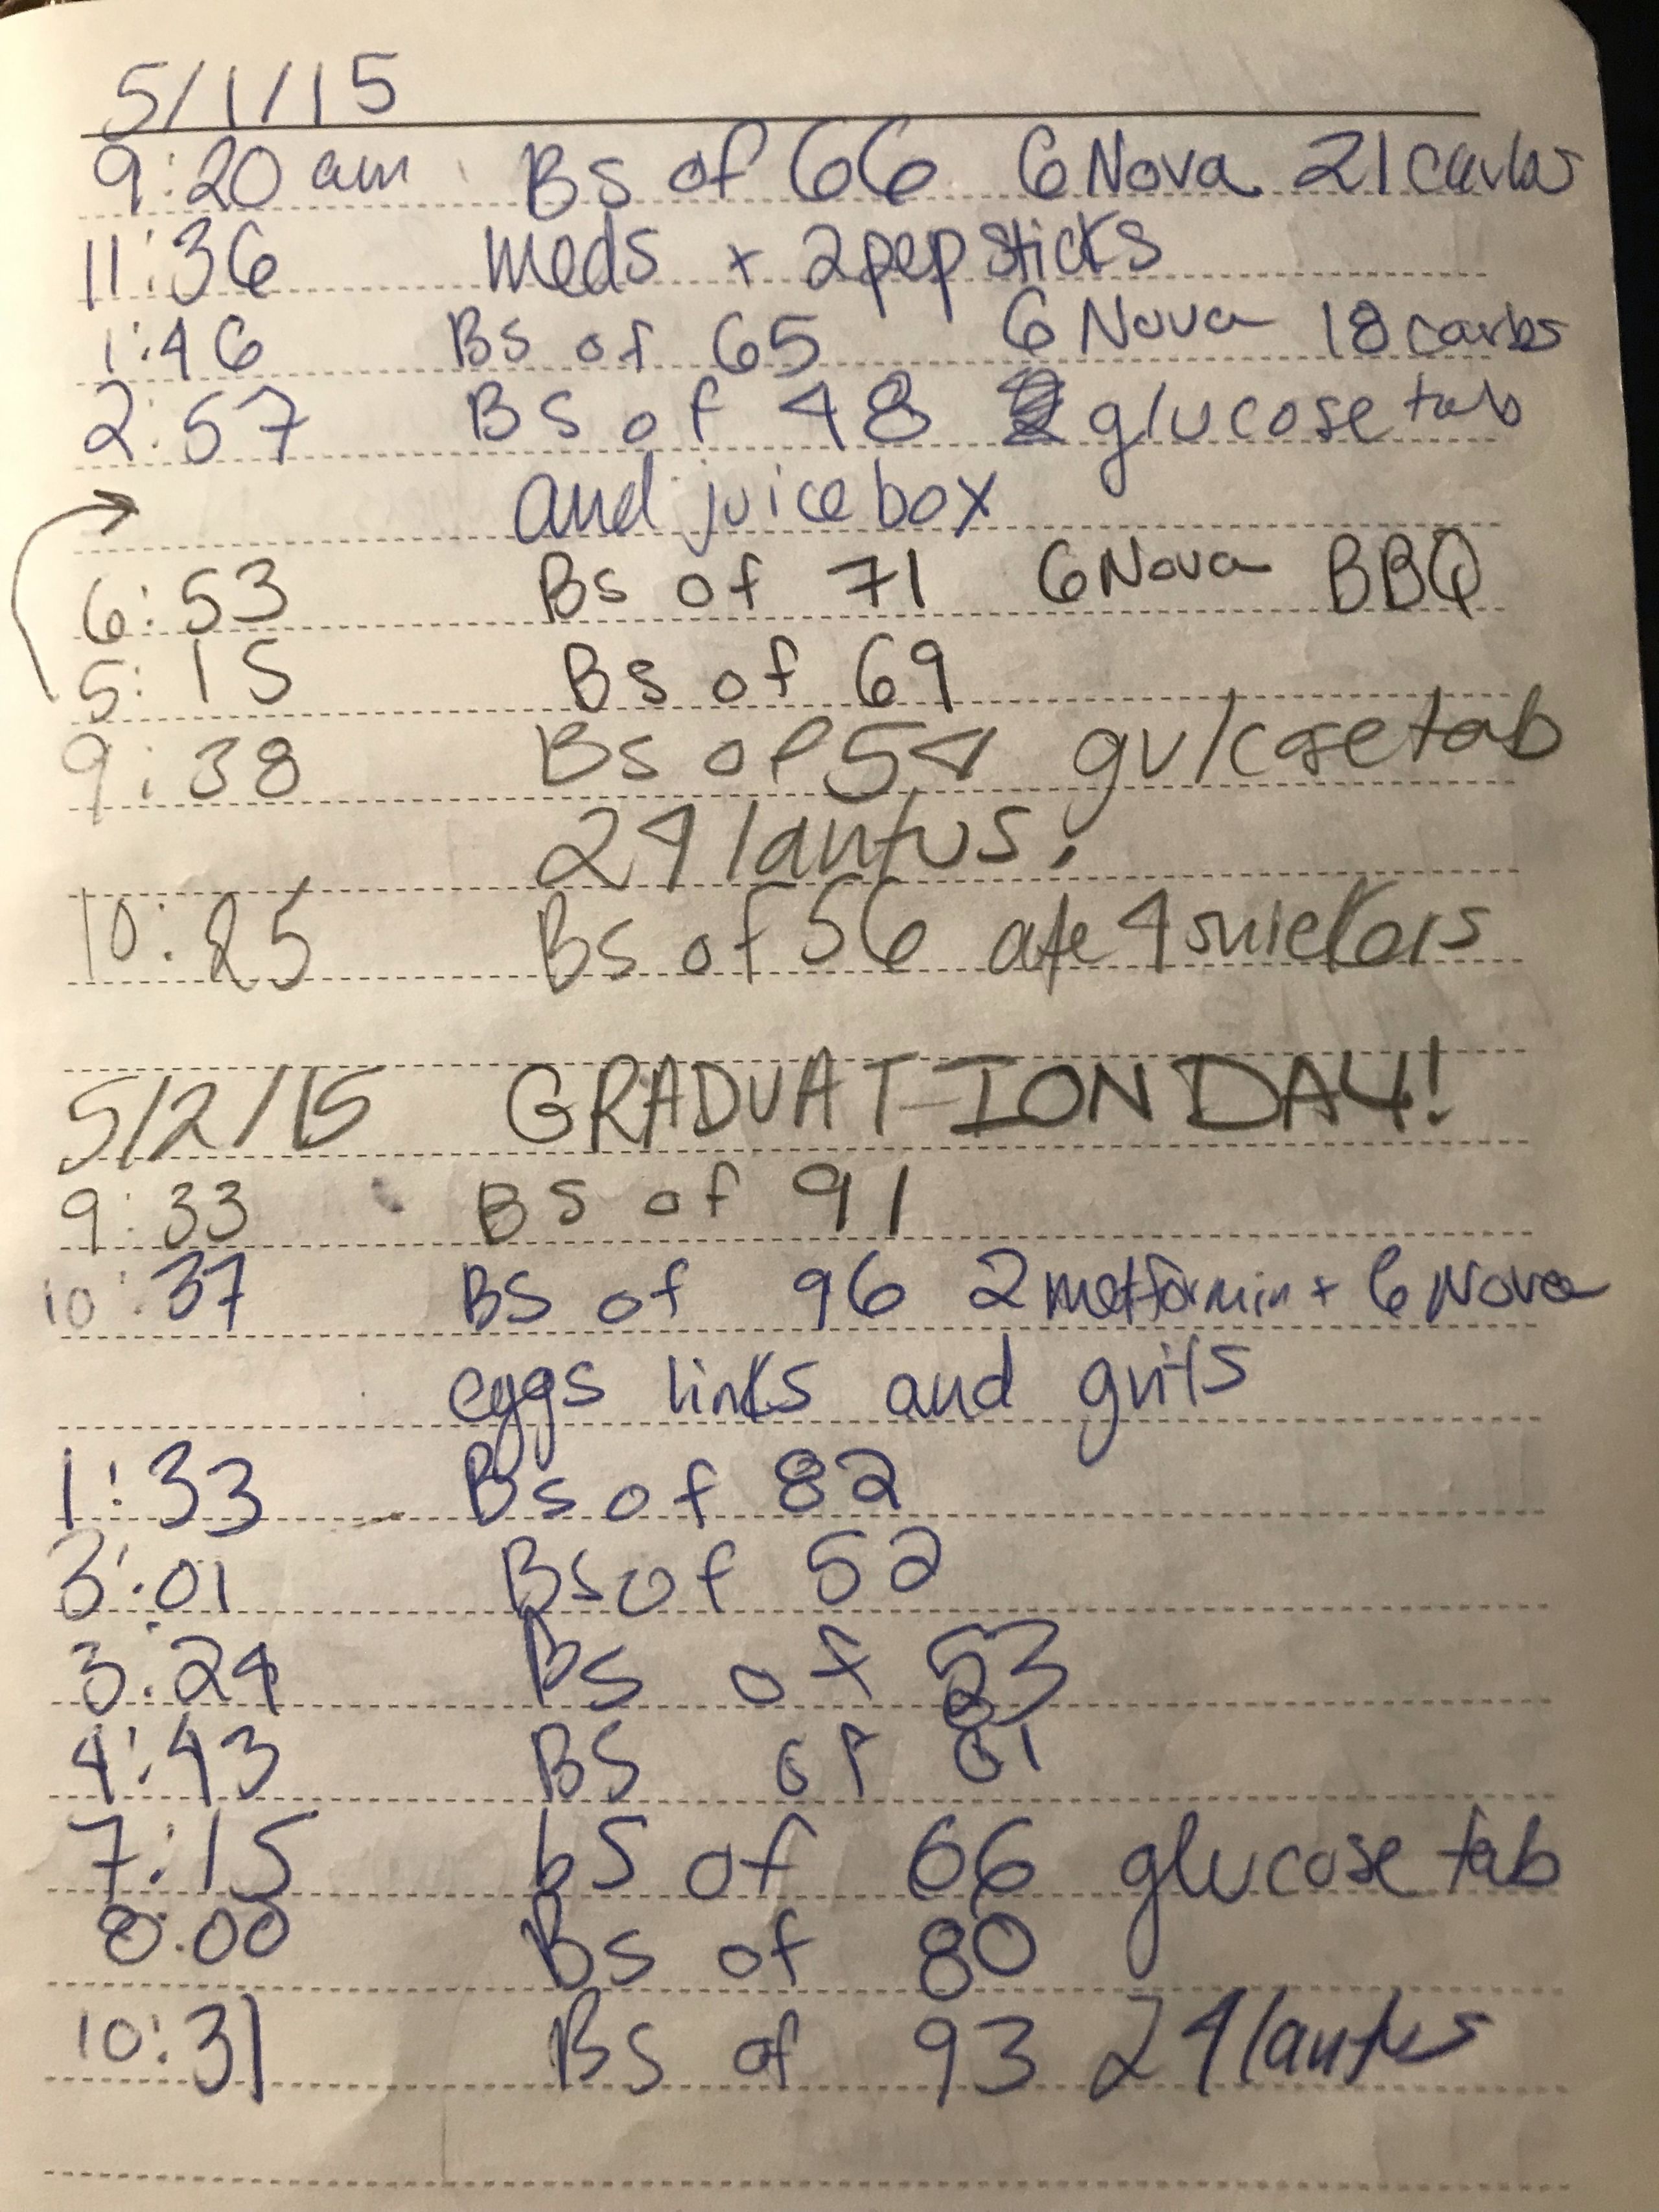 5/1/15
9:20 am Bs of 66 6 Nova 21 carbs
11:36 meds + 2 pep sticks
1:46 Bs of 65 6 Nova 18 carbs
2:57 BS of 48 glucose tab
and juice box
6:53 Bs of 71 6 Nova BBQ
5:15 Bs of 69
9:38 Bs of 54 gulcose tab
24 lantus.
10:25 Bs of 56 ate 4 snickers
5/2/15 GRADUATION DAY!
9:33 BS of 91
10:37 BS of 96 2 metformin + 6 Nova
eggs links and grits
1:33 Bs of 82
3:01 Bs of 52
3:24 Bs of 53
4:43 BS of 61
7:15 bS of 66 glucose tab
8:00 Bs of 80
10:31 Bs of 93 24 lantus